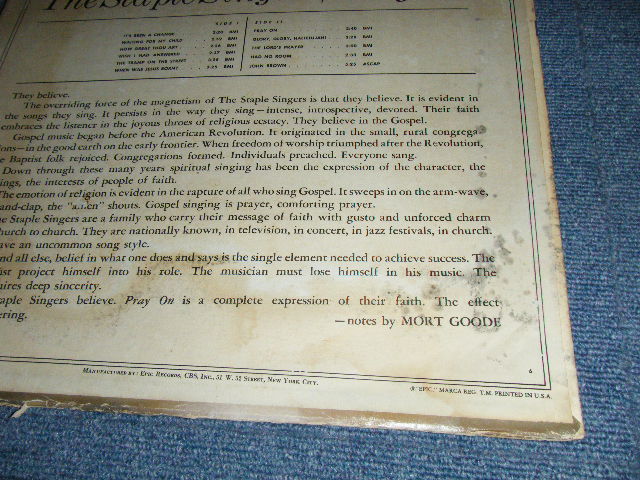 The Staple Sing
SIDE I
IT'S BEEN A CHANGE 2:20 BMI
WAITING FOR MY CHILD 2:59 BMI
HOW GREAT THOU ART BMI
WISH I HAD ANSWERED 2:27 BMI
THE TRAMP ON THE STREET BMI
WHEN WAS JESUS BORN? 2:25 BMI
SIDE II
PRAY ON 2:40 BMI
GLORY, GLORY, HALLELUJAH! BMI
THE LORD'S PRAYER BMI
HAD NO ROOM BMI
JOHN BROWN ASCAP
They believe.
The overriding force of the magnetism of The Staple Singers is that they believe. It is evident in
the songs they sing. It persists in the way they sing—intense, introspective, devoted. Their faith
embraces the listener in the joyous throes of religious ecstacy. They believe in the Gospel.
Gospel music began before the American Revolution. It originated in the small, rural congrega
ions—in the good earth on the early frontier. When freedom of worship triumphed after the Revolution,
e Baptist folk rejoiced. Congregations formed. Individuals preached. Everyone sang.
Down through these many years spiritual singing has been the expression of the character, the
ings, the interests of people of faith.
The emotion of religion is evident in the rapture of all who sing Gospel. It sweeps in on the arm-wave,
and-clap, the "amen" shouts. Gospel singing is prayer, comforting prayer.
he Staple Singers are a family who carry their message of faith with gusto and unforced charm
hurch to church. They are nationally known, in television, in concert, in jazz festivals, in church.
ave an uncommon song style.
nd all else, belief in what one does and says is the single element needed to achieve success. The
ist project himself into his role. The musician must lose himself in his music. The
uires deep sincerity.
taple Singers believe. Pray On is a complete expression of their faith. The effect
ering.
—notes by MORT GOODE
6
MANUFACTURED BY: EPIC RECORDS, CBS, INC., 51 W. 52 STREET, NEW YORK CITY.
® "EPIC," MARCA REG. T.M. PRINTED IN U.S.A.